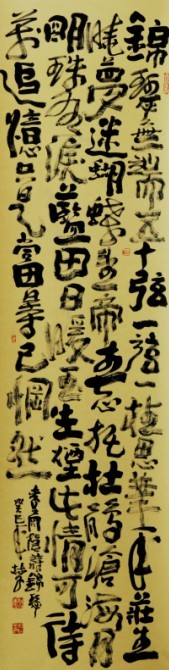 錦瑟無端五十弦一弦一柱思華年莊生
曉夢迷蝴蝶望帝春心托杜鵑滄海月
明珠有淚藍田日暖玉生煙此情可待
成追憶只是當時已惘然
李商隱詩錦瑟
癸巳